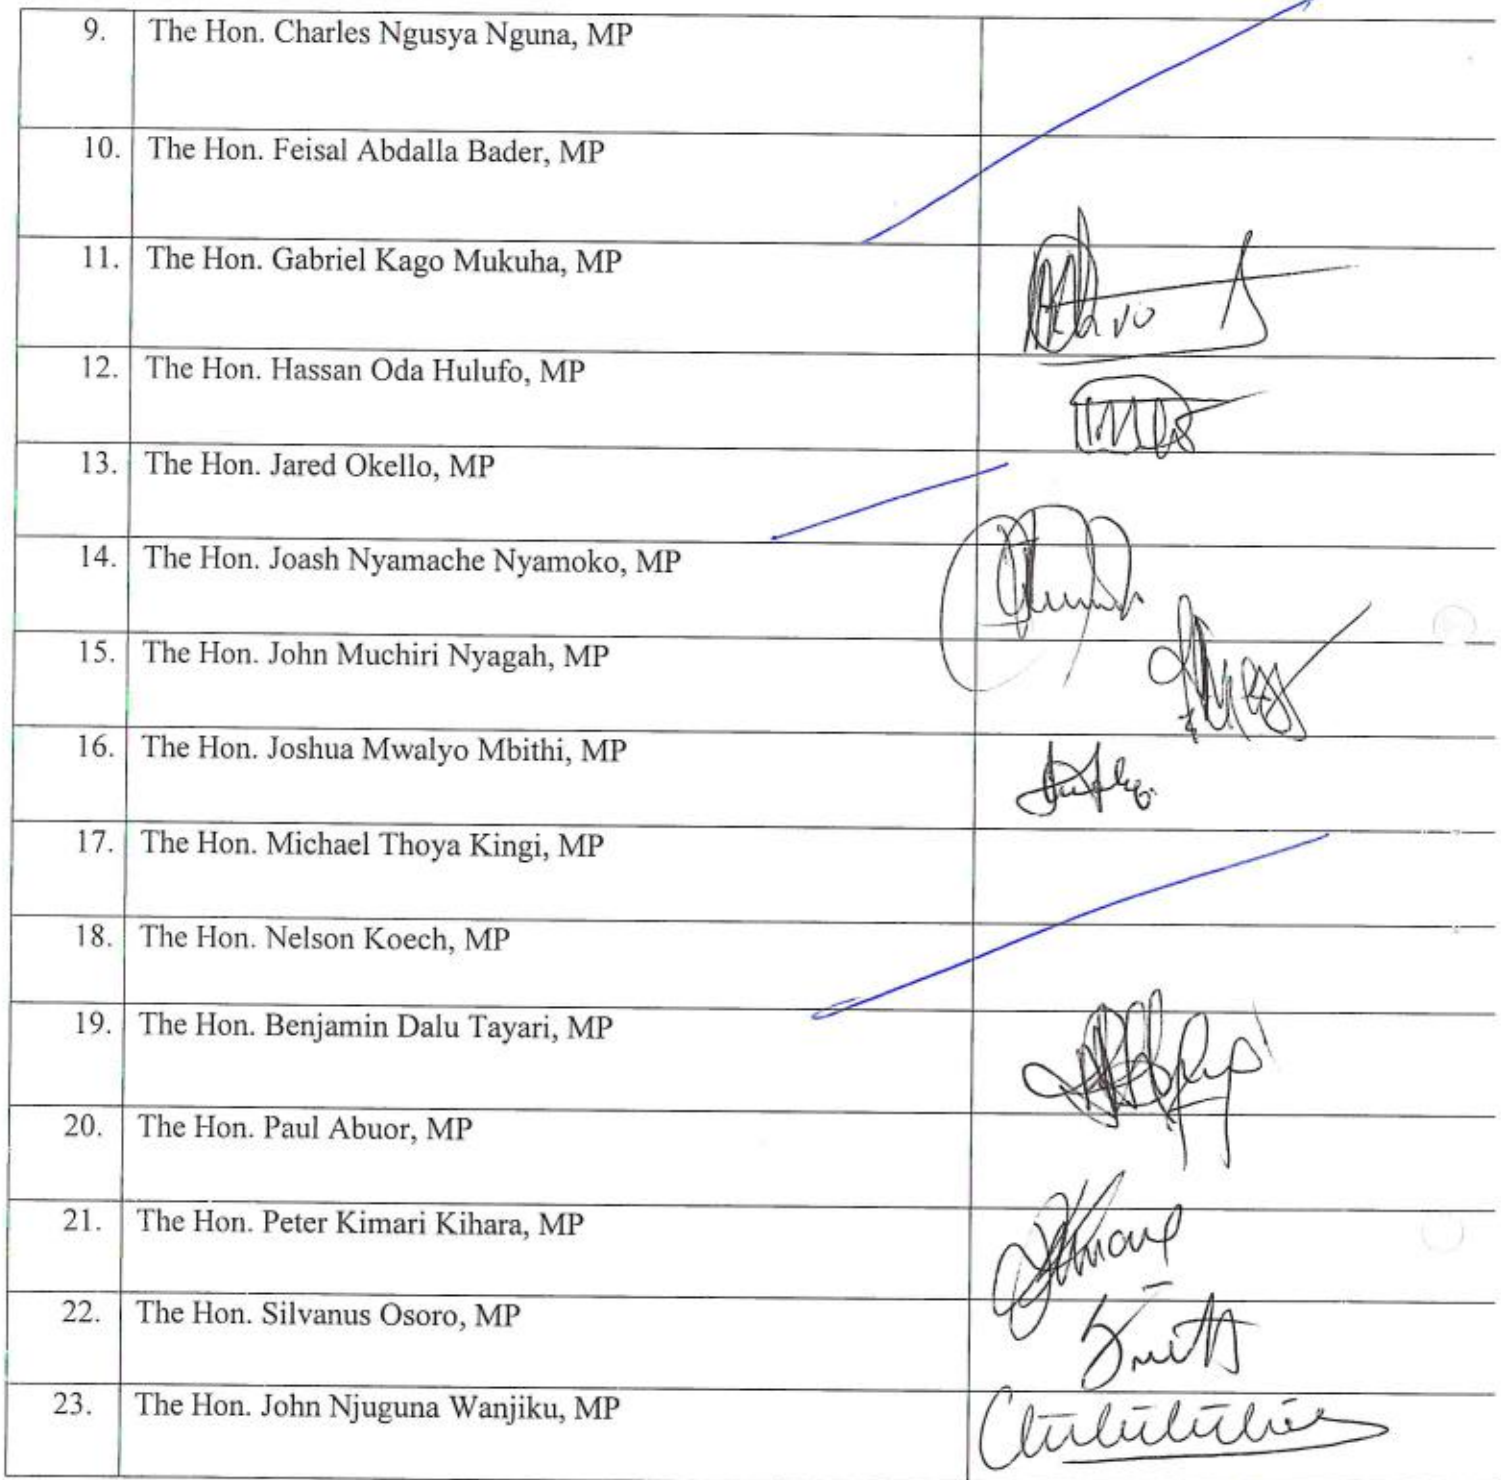 9. The Hon. Charles Ngusya Nguna, MP
10. The Hon. Feisal Abdalla Bader, MP
11. The Hon. Gabriel Kago Mukuha, MP
12. The Hon. Hassan Oda Hulufo, MP
13. The Hon. Jared Okello, MP
14. The Hon. Joash Nyamache Nyamoko, MP
15. The Hon. John Muchiri Nyagah, MP
16. The Hon. Joshua Mwalyo Mbithi, MP
17. The Hon. Michael Thoya Kingi, MP
18. The Hon. Nelson Koech, MP
19. The Hon. Benjamin Dalu Tayari, MP
20. The Hon. Paul Abuor, MP
21. The Hon. Peter Kimari Kihara, MP
22. The Hon. Silvanus Osoro, MP
23. The Hon. John Njuguna Wanjiku, MP